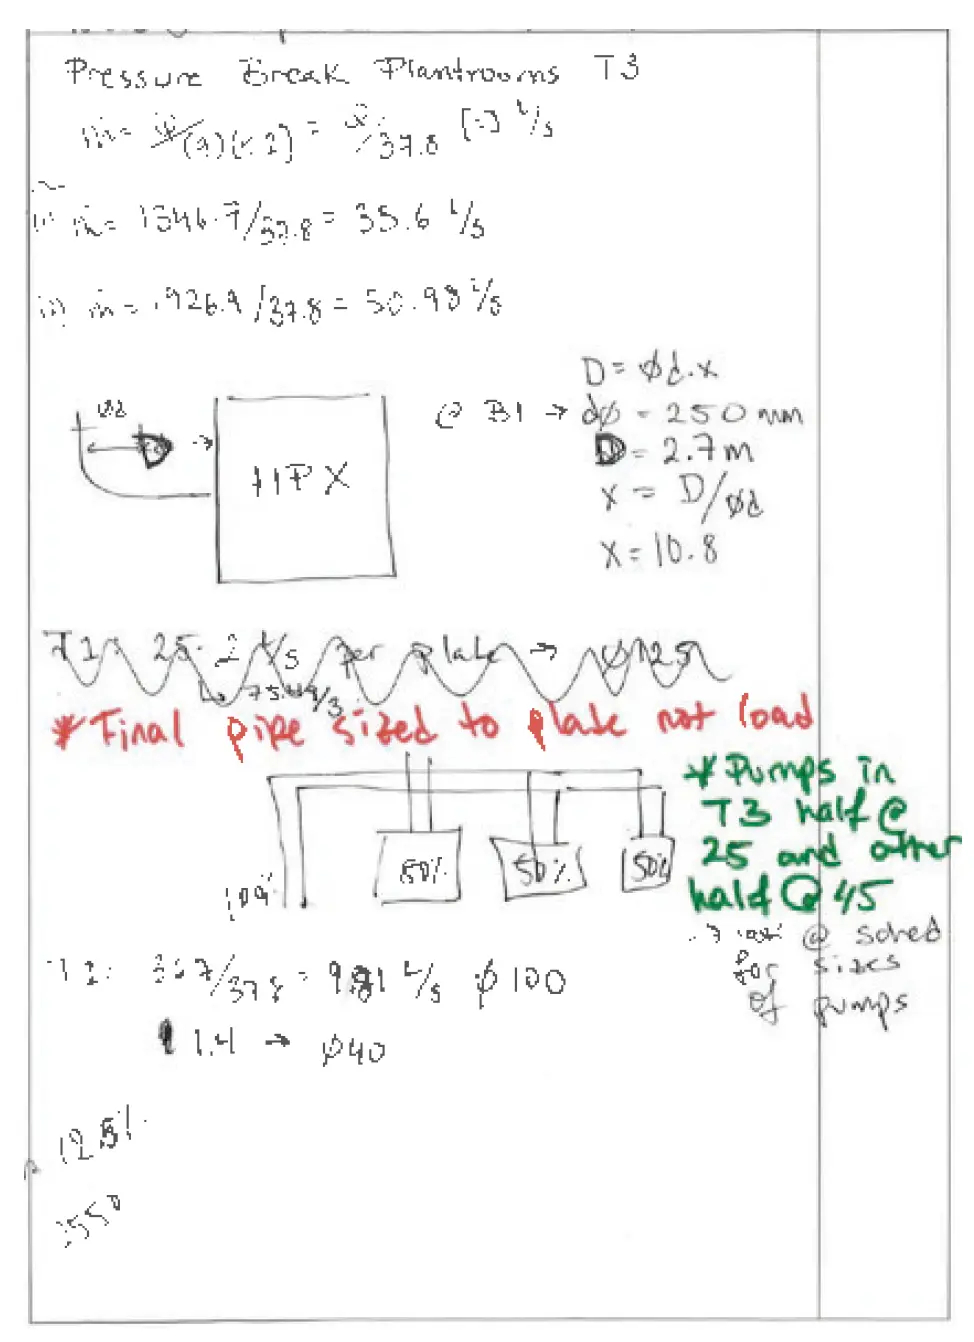 Pressure Break Plantrooms T3
ṁ = /(9)(4.2) = /37.8 [=] L/s
ṁ = 1346.7/37.8 = 35.6 L/s
ii) ṁ = 1926.9/37.8 = 50.98 L/s
D = ød.x
@ B1 → dø = 250 mm
D = 2.7m
x = D/ød
x = 10.8
ød
D →
HPX
T1: 25.2 L/s per plate → ø125
↳ 75.49/3
* Final pipe sized to plate not load
* Pumps in
T3 half @
25 and other
half @ 45
→ @ sched
for sizes
of pumps
50% 50% 50%
100%
T2: 367/37.8 = 9.81 L/s ø100
1.4 → ø40
12.5%